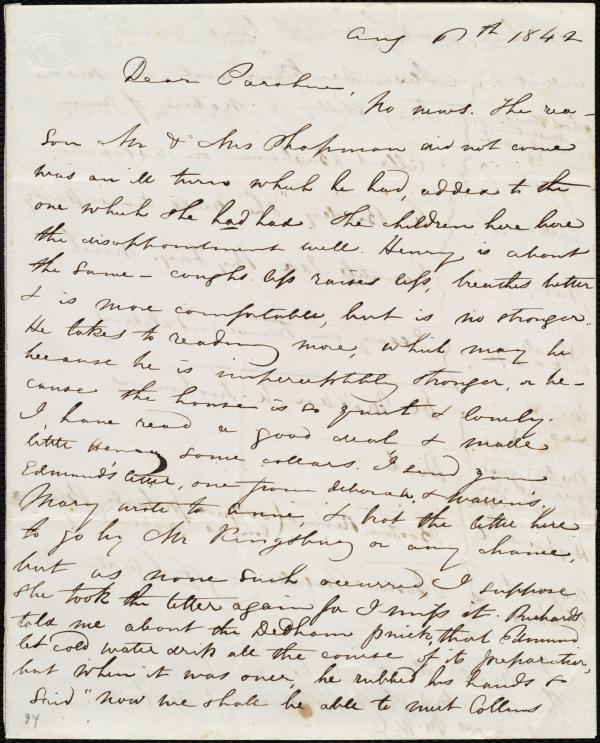 Aug 17th 1842
Dear Caroline,
No news. The rea-
son Mr & Mrs Chapman did not come
was an ill turn which he had, added to the
one which she had had. The children here bore
the disappointment well. Henry is about
the same - coughs less raises less, breathes better
& is more comfortable, but is no stronger.
He takes to reading more, which may be
because he is imperceptibly stronger, or be-
cause the house is so quiet & lonely.
I have read a good deal & made
little Henry some collars. I send you
Edmund's letter, one from Deborah, & Warren's.
Mary wrote to Annie, & brot the letter here
to go by Mr Kingsbury or any chance,
but as none such occurred, I suppose
she took the letter again for I miss it. Richards
told me about the Dedham picnic, that Edmund
let cold water drip all the course of its preparation,
but when it was over, he rubbed his hands &
said "now we shall be able to meet Collins
24